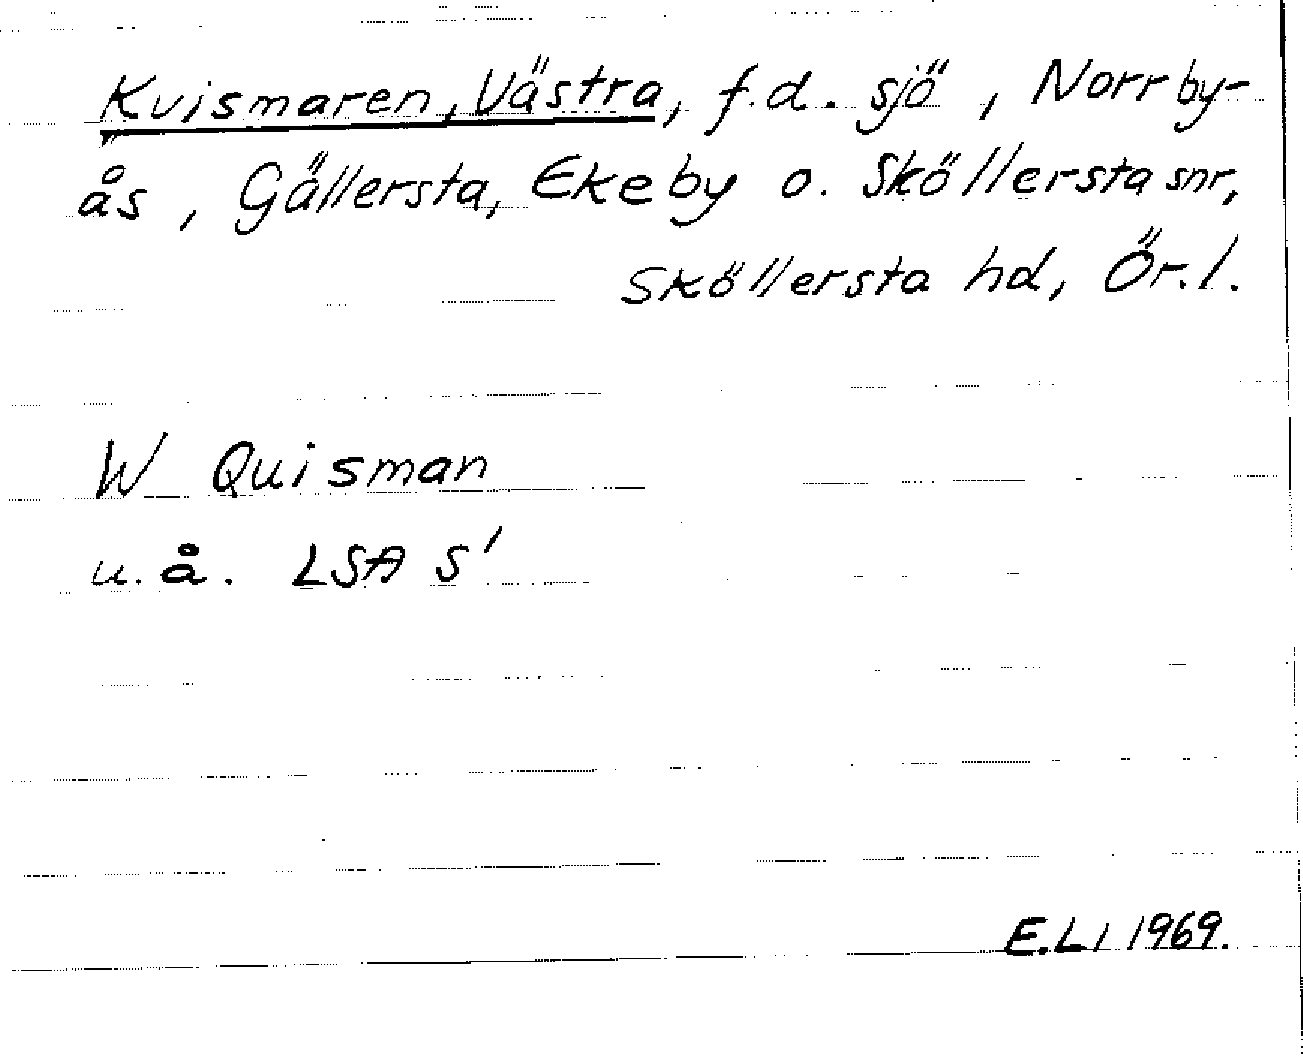 Kvismaren, Västra, f.d. sjö, Norrby-
ås, Gällersta, Ekeby o. Sköllersta snr,
Sköllersta hd, Ör.l.
W Quisman
u.å. LSA S'
E.Li 1969.